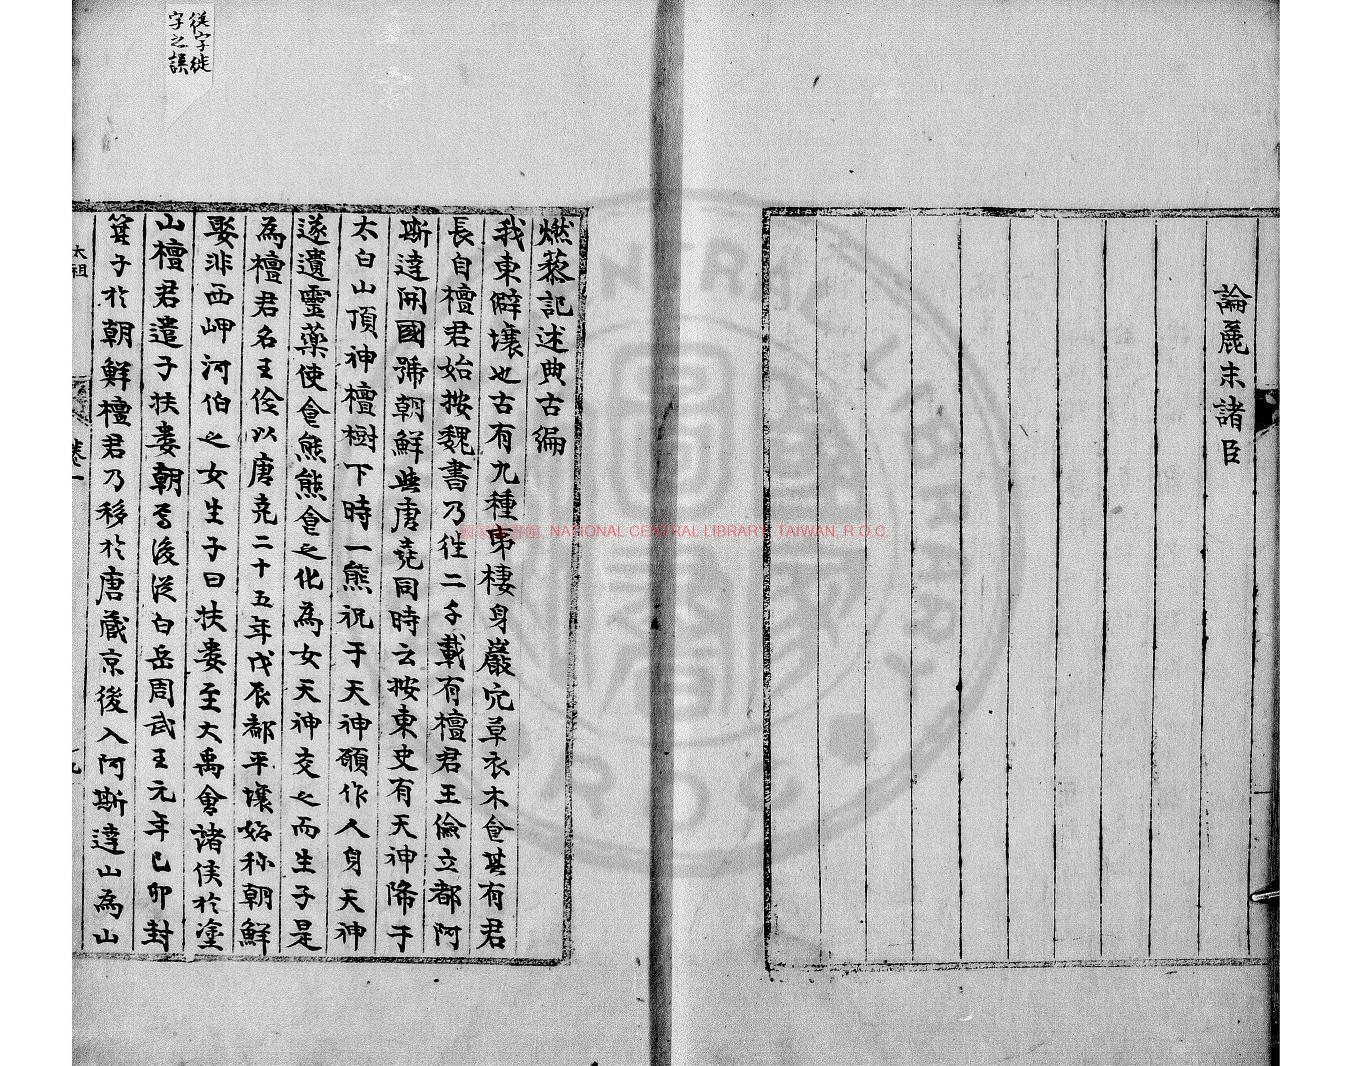 論麗末諸臣
燃藜記述典古編
我東僻壤也古有九種夷棲身巖穴草衣木食其有君
長自檀君始按魏書乃徃二千載有檀君王儉立都阿
斯達開國號朝鮮與唐堯同時云按東史有天神降于
太白山頂神檀樹下時一熊祝于天神願作人身天神
遂遺靈藥使食熊熊食之化為女天神交之而生子是
為檀君名王儉以唐堯二十五年戊辰都平壤始称朝鮮
娶非西岬河伯之女生子曰扶婁至大禹會諸侯於塗
山檀君遣子扶婁朝焉後從白岳周武王元年己卯封
箕子於朝鮮檀君乃移於唐蔵京後入阿斯達山為山
太祖
卷一
從字徙
字之誤
國家圖書館, NATIONAL CENTRAL LIBRARY, TAIWAN, R.O.C.